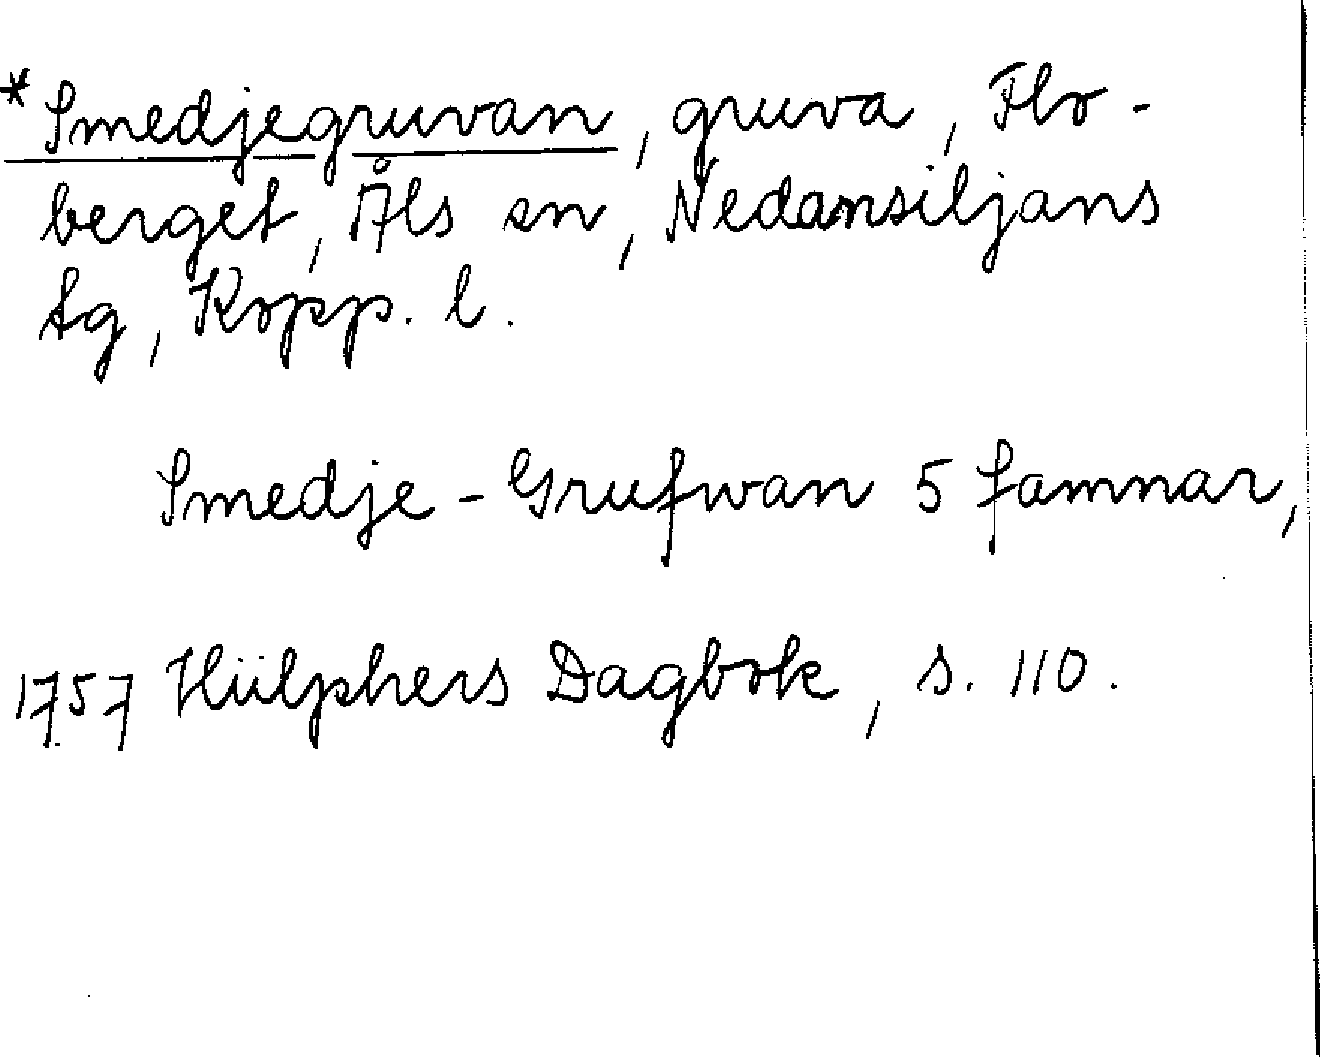 *Smedjegruvan, gruva, Flo-
berget, Åls sn, Nedansiljans
tg, Kopp. l.
Smedje-Grufwan 5 famnar,
1757 Hülphers Dagbok, s. 110.